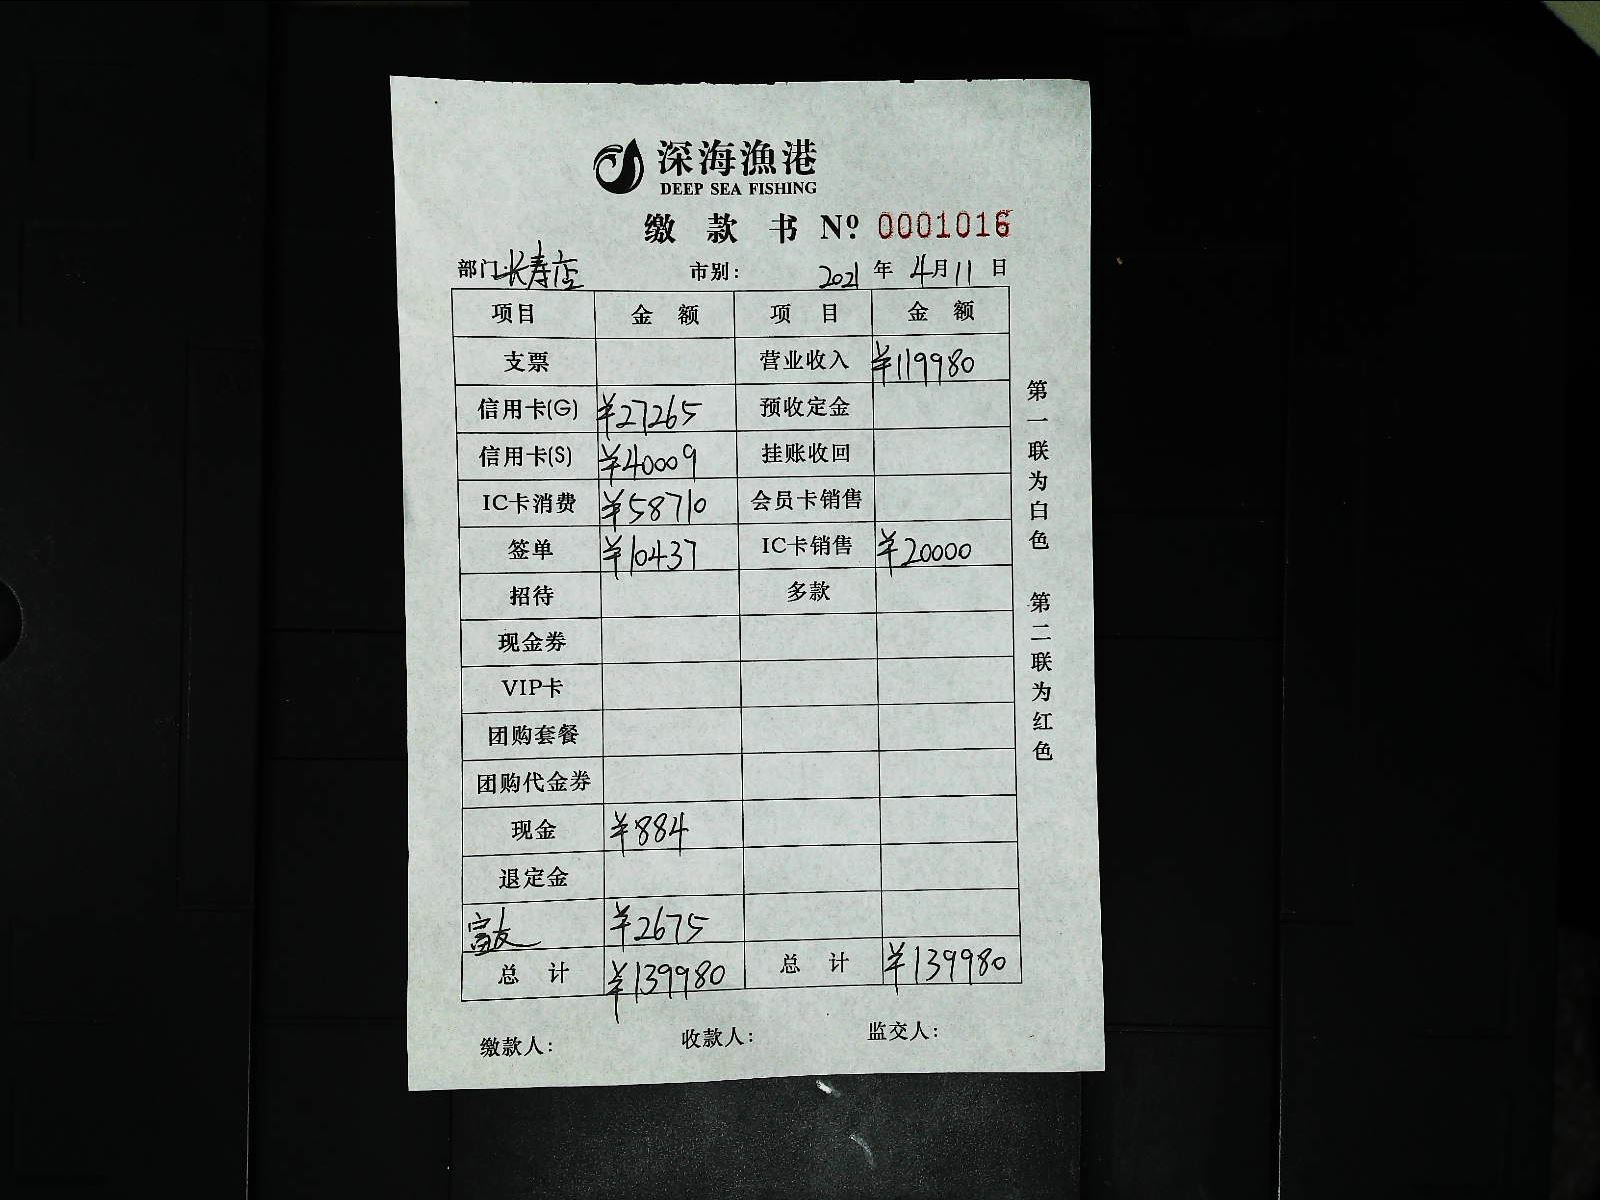 深海漁港
DEEP SEA FISHING
缴款书 Nº 0001016
部门:长寿店 市别: 2021年4月11日
项目 金额 项目 金额
支票 营业收入 ¥119980
信用卡(G) ¥27265 预收定金
信用卡(S) ¥40009 挂账收回
IC卡消费 ¥58710 会员卡销售
签单 ¥10437 IC卡销售 ¥20000
招待 多款
现金券
VIP卡
团购套餐
团购代金券
现金 ¥884
退定金
富友 ¥2675
总计 ¥139980 总计 ¥139980
缴款人: 收款人: 监交人:
第一联为白色 第二联为红色